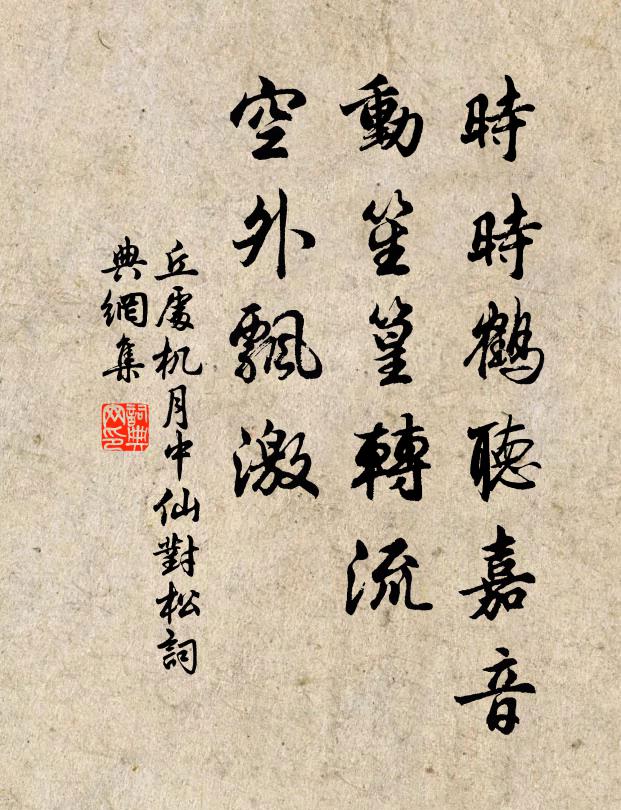 時時鶴聴嘉音
動笙篁轉流
空外飄激
丘處机月中仙對松詞
典網集
詞典
网印